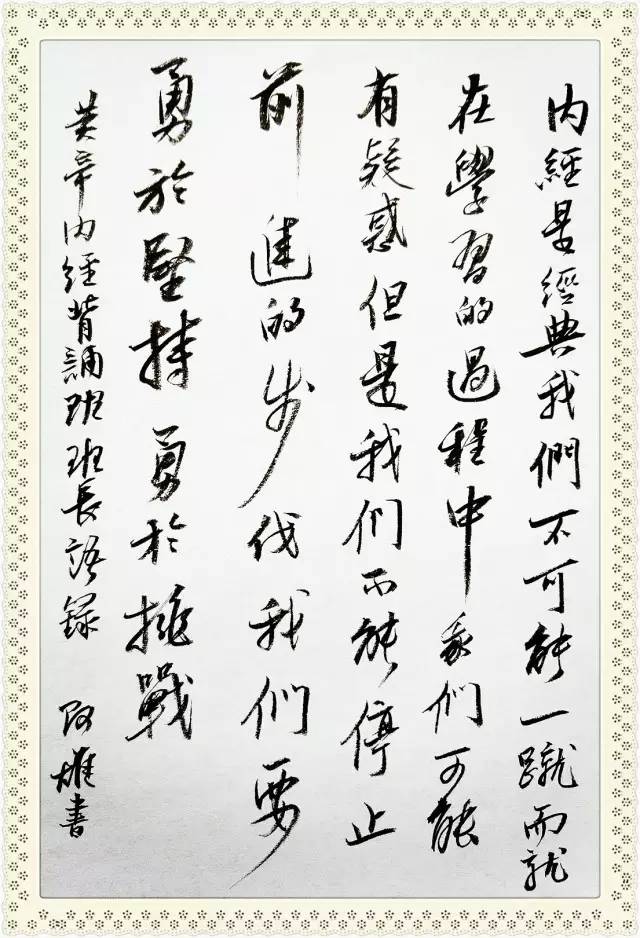 内經是經典我們不可能一蹴而就
在學習的過程中我们可能
有疑惑但是我们不能停止
前進的步伐我们要
勇於堅持勇於挑戰
黄帝内經背誦班班長語録 阿雄書